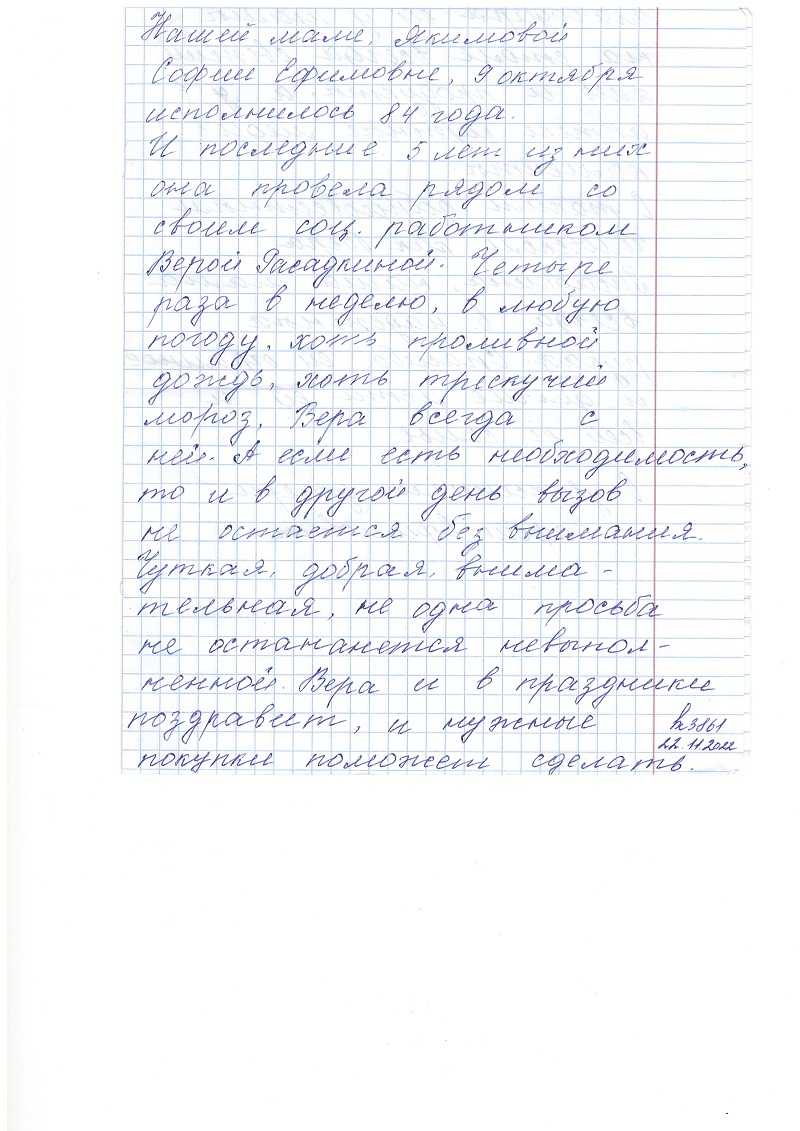 Нашей маме, Якимовой
Софии Ефимовне, 9 октября
исполнилось 84 года.
И последние 5 лет из них
она провела рядом со
своим соц. работником
Верой Расадкиной. Четыре
раза в неделю, в любую
погоду, хоть проливной
дождь, хоть трескучий
мороз, Вера всегда с
ней. А если есть необходимость,
то и в другой день вызов
не остается без внимания.
Чуткая, добрая, внима-
тельная, не одна просьба
не останается невыпол-
ненной. Вера и в праздники
поздравит, и нужные
покупки поможет сделать.
вх3861
22.11.2022